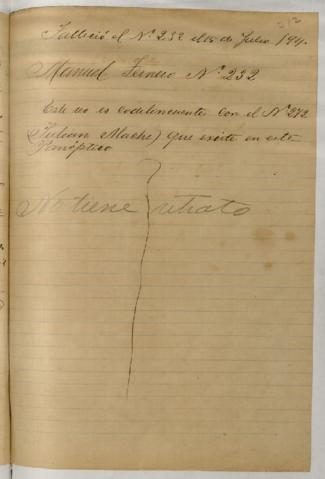 312
Falleció el Nº 232 el 18 de Julio 194.
Manuel Nº 232
Este es codelincuente con el Nº 272
(Julian Mache) que existe en este
Panóptico
No tiene retrato